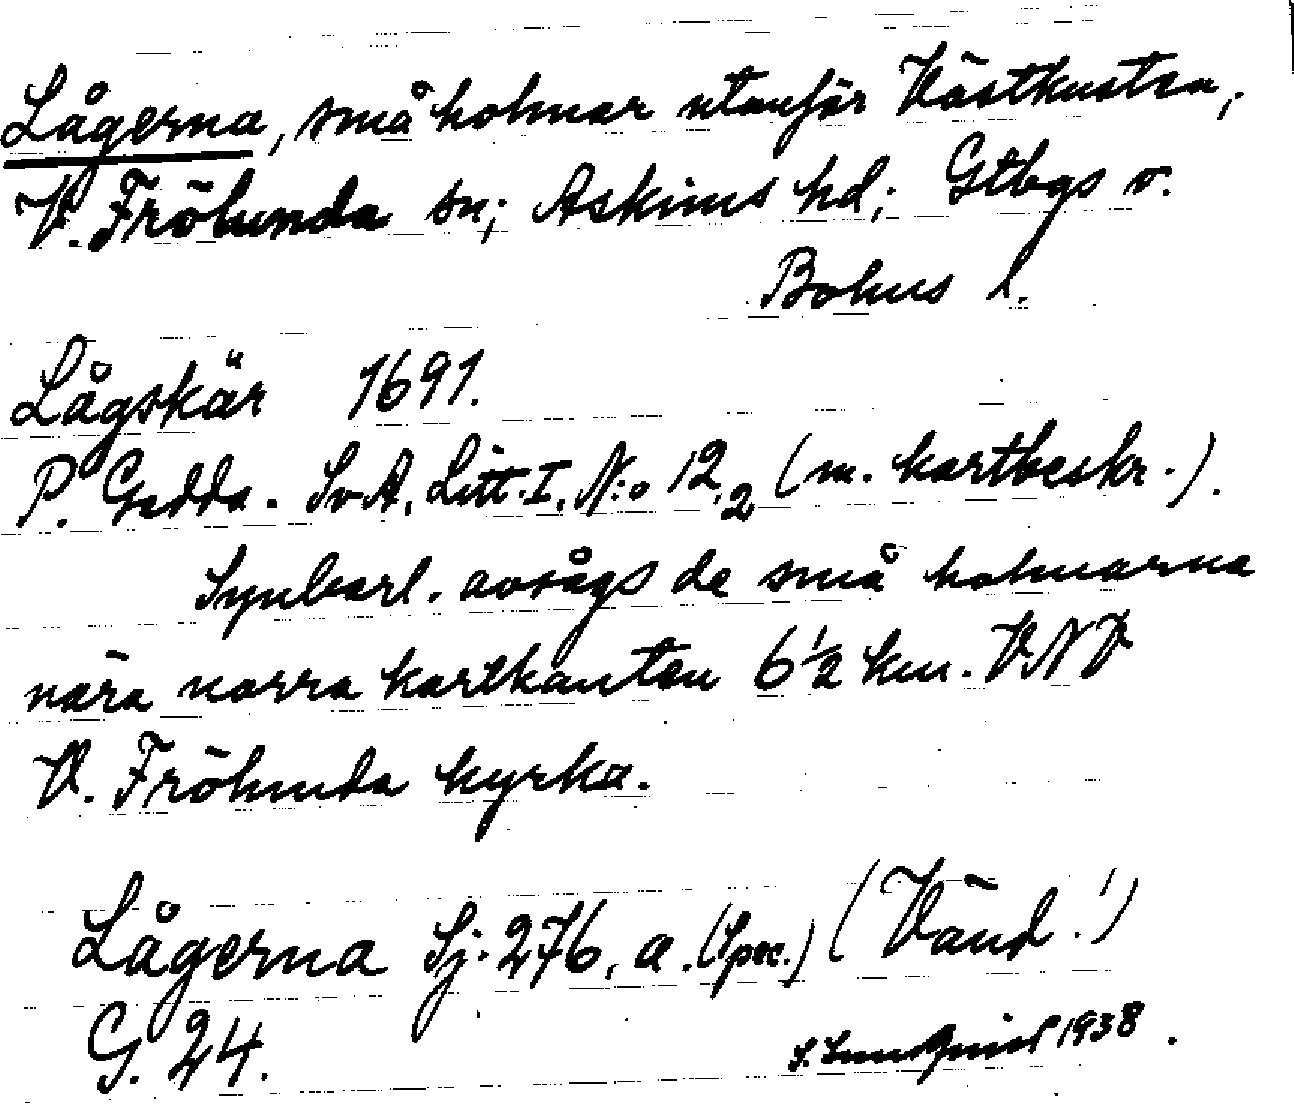 Lågerna, små holmar utanför Västkusten,
V. Frölunda sn; Askims hd; Gtbgs o.
Bohus l.
Lågskär 1691.
P. Gedda. SvA. Litt. I. N:o 12,2 (m. kartbeskr.).
Synbarl. avsågs de små holmarna
nära norra kartkanten 6½ km. VNV
V. Frölunda kyrka.
Lågerna Sj. 276, a. (Spec.) (Vänd!)
G. 24.
1938.